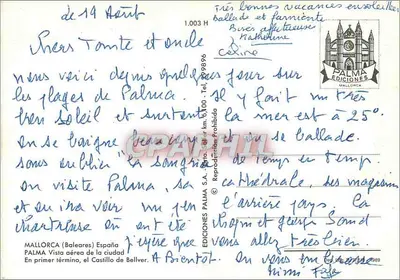 le 19 Août
1.003 H
Très bonnes vacances ensoleillées
ballade et farniente
Bises affectueuses
Katherine
Céline
PALMA
EDICIONES
MALLORCA
Chers Tante et oncle
nous voici depuis quelques jours sur
les plages de Palma. Il y fait un très
bon soleil et surtout la mer est à 25°.
On se baigne, beaucoup et on se ballade.
sans oublier la sangria de temps en temps.
On visite Palma, sa cathédrale, ses magasins
et on ira voir un peu l'arrière pays. La
chartreuse où ont été Chopin et George Sand
J'espère que vous allez très bien.
A Bientôt. On vous embrasse
EDICIONES PALMA, S.A.
© Reproducción Prohibida
MALLORCA (Baleares) España
PALMA Vista aérea de la ciudad
En primer término, el Castillo de Bellver.